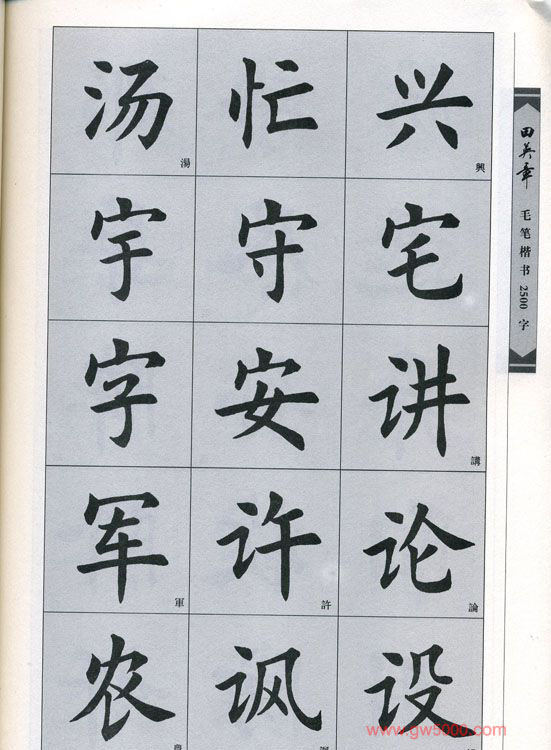 汤 忙 兴
湯 興
宇 守 宅
字 安 讲
講
军 许 论
軍 許 論
农 讽 设
田英章 毛笔楷书2500字
www.gw5000.com